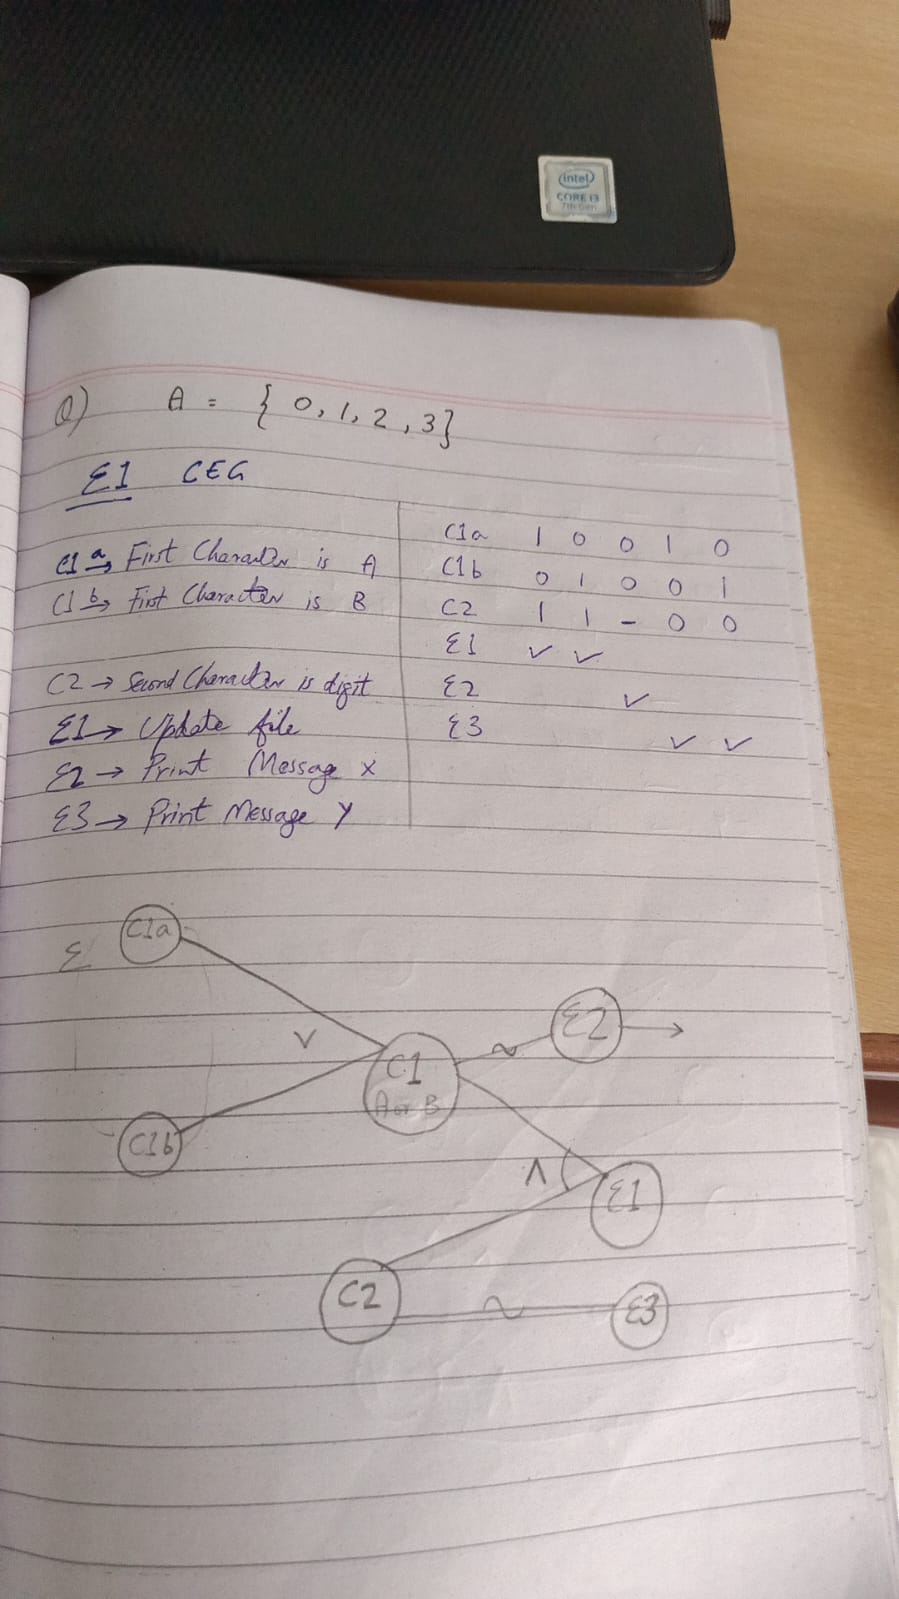 intel
CORE i3
7th Gen
Q) A = { 0, 1, 2, 3}
E1 CEG
C1a → First Character is A
C1b → First Character is B
C2 → Second Character is digit
E1 → Update file
E2 → Print Message X
E3 → Print Message Y
C1a 1 0 0 1 0
C1b 0 1 0 0 1
C2 1 1 - 0 0
E1 ✓ ✓
E2 ✓
E3 ✓ ✓
C1a
E
V
C1
A or B
~
E2
C1b
Λ
E1
C2
~
E3